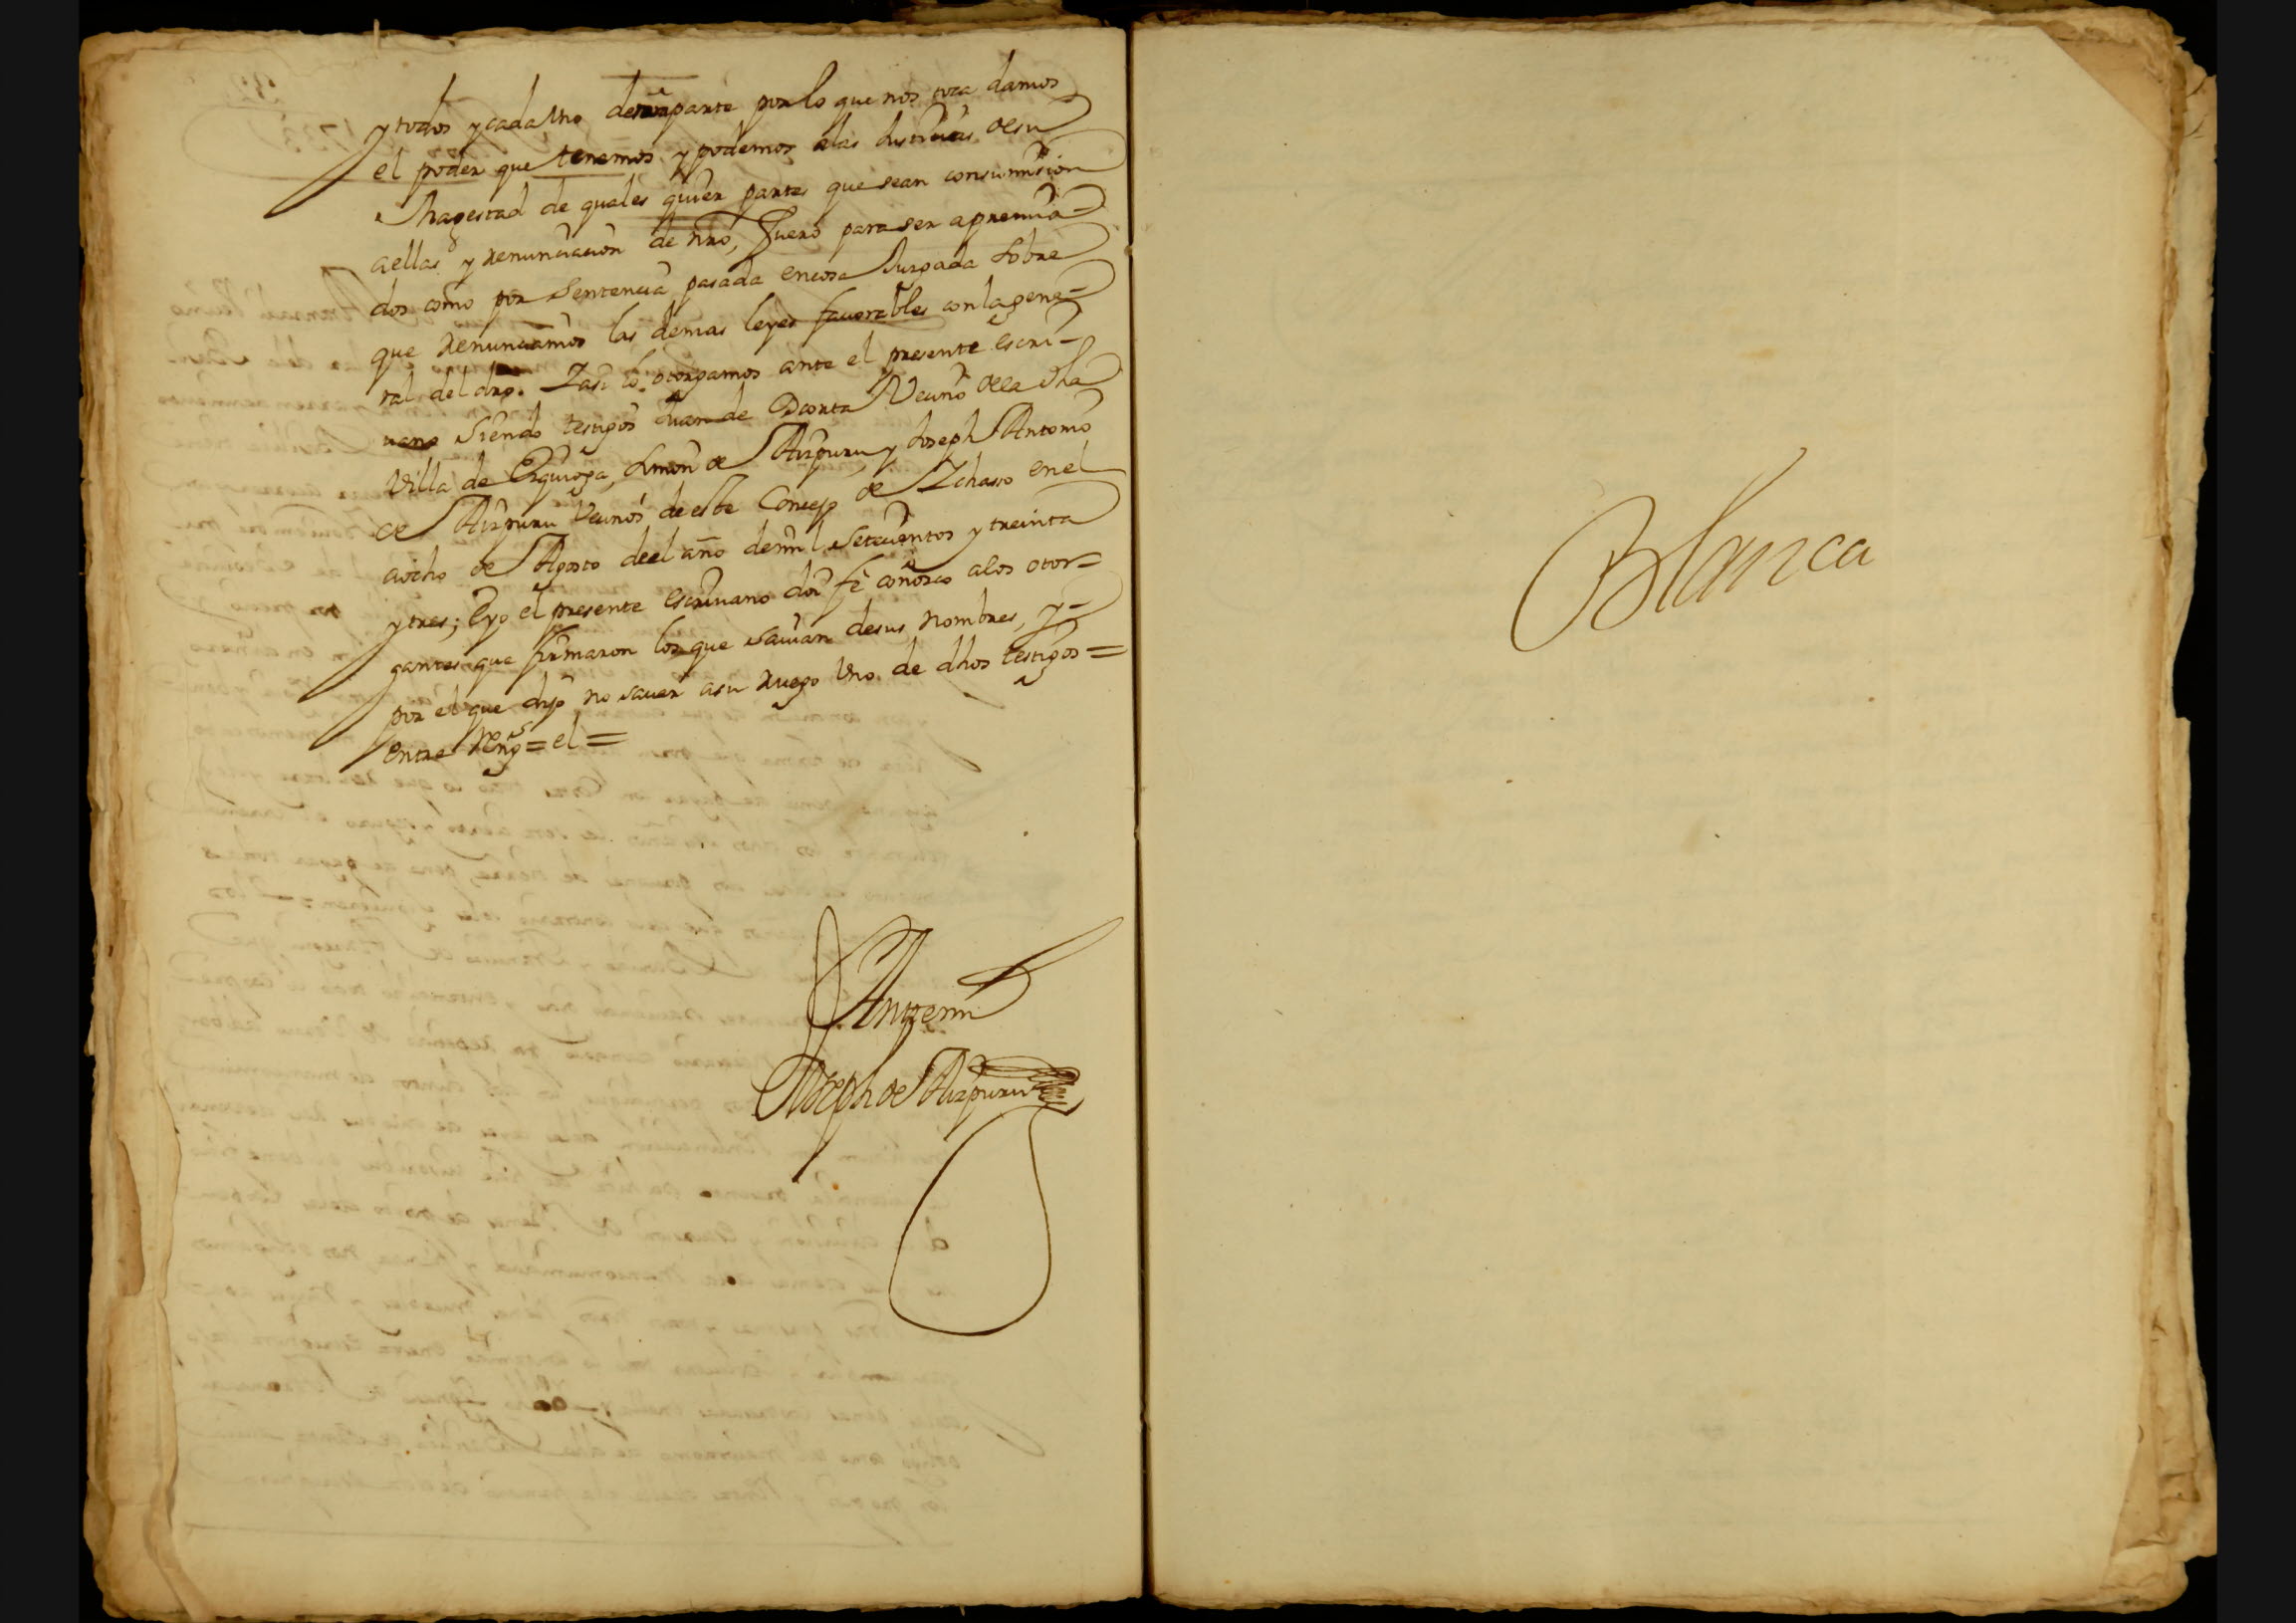 y todos y cada Uno de nra parte por lo que nos toca damos
el poder que tenemos y podemos a las Justicias de su
Magestad de quales quier partes que sean con sumision
a ellas y renunciacion de nro, fuero para ser apremia=
dos como por Sentencia pasada en cosa Jusgada sobre
que renunciamos las demas leyes favorables con la gene=
ral del dro. I asi lo otorgamos ante el presente escri=
uano Siendo testigos Juan de Vecino de la dha
Villa de Ezquioga, Simon de Aizpuru y Joseph Antonio
de Aizpuru Vecinos de este Concejo de Ichaso en el
a ocho de Agosto de el año de mil Setecientos y treinta
y tres; E yo el presente escriuano doi fe conosco a los otor=
gantes que firmaron los que sauian de sus nombres, y=
por el que dijo no sauer a su ruego Uno de dhos testigos=
entre Rengs = el =
Ante mi
Joseph de Aizpuru
Blanca